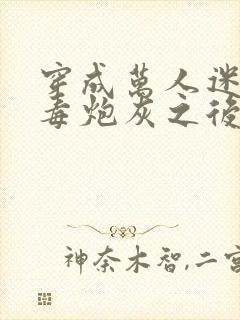 穿成萬人迷
毒炮灰之後
神奈木智,二宮